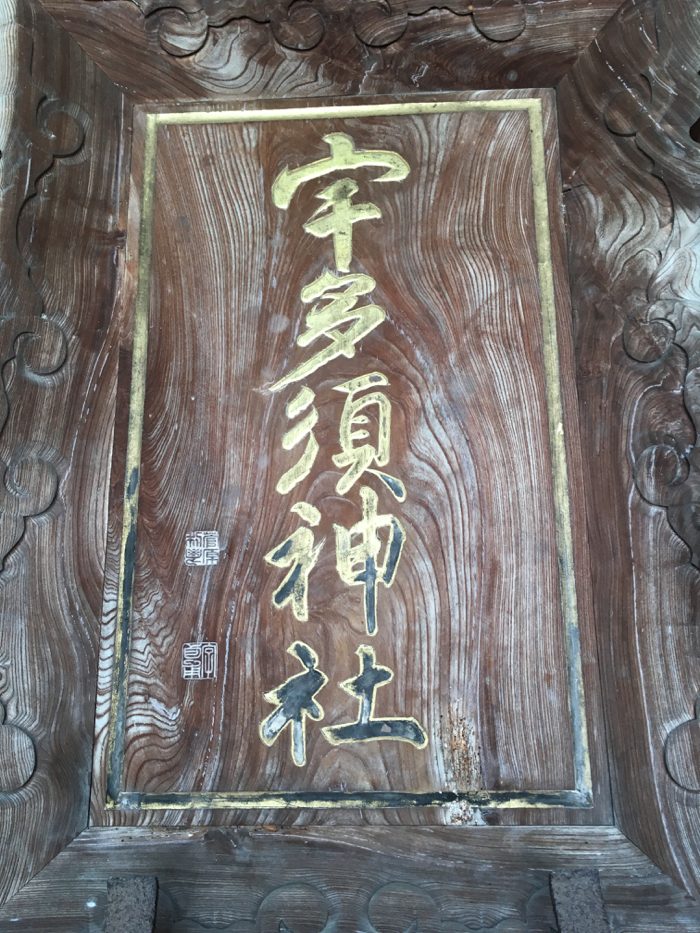 宇多須神社